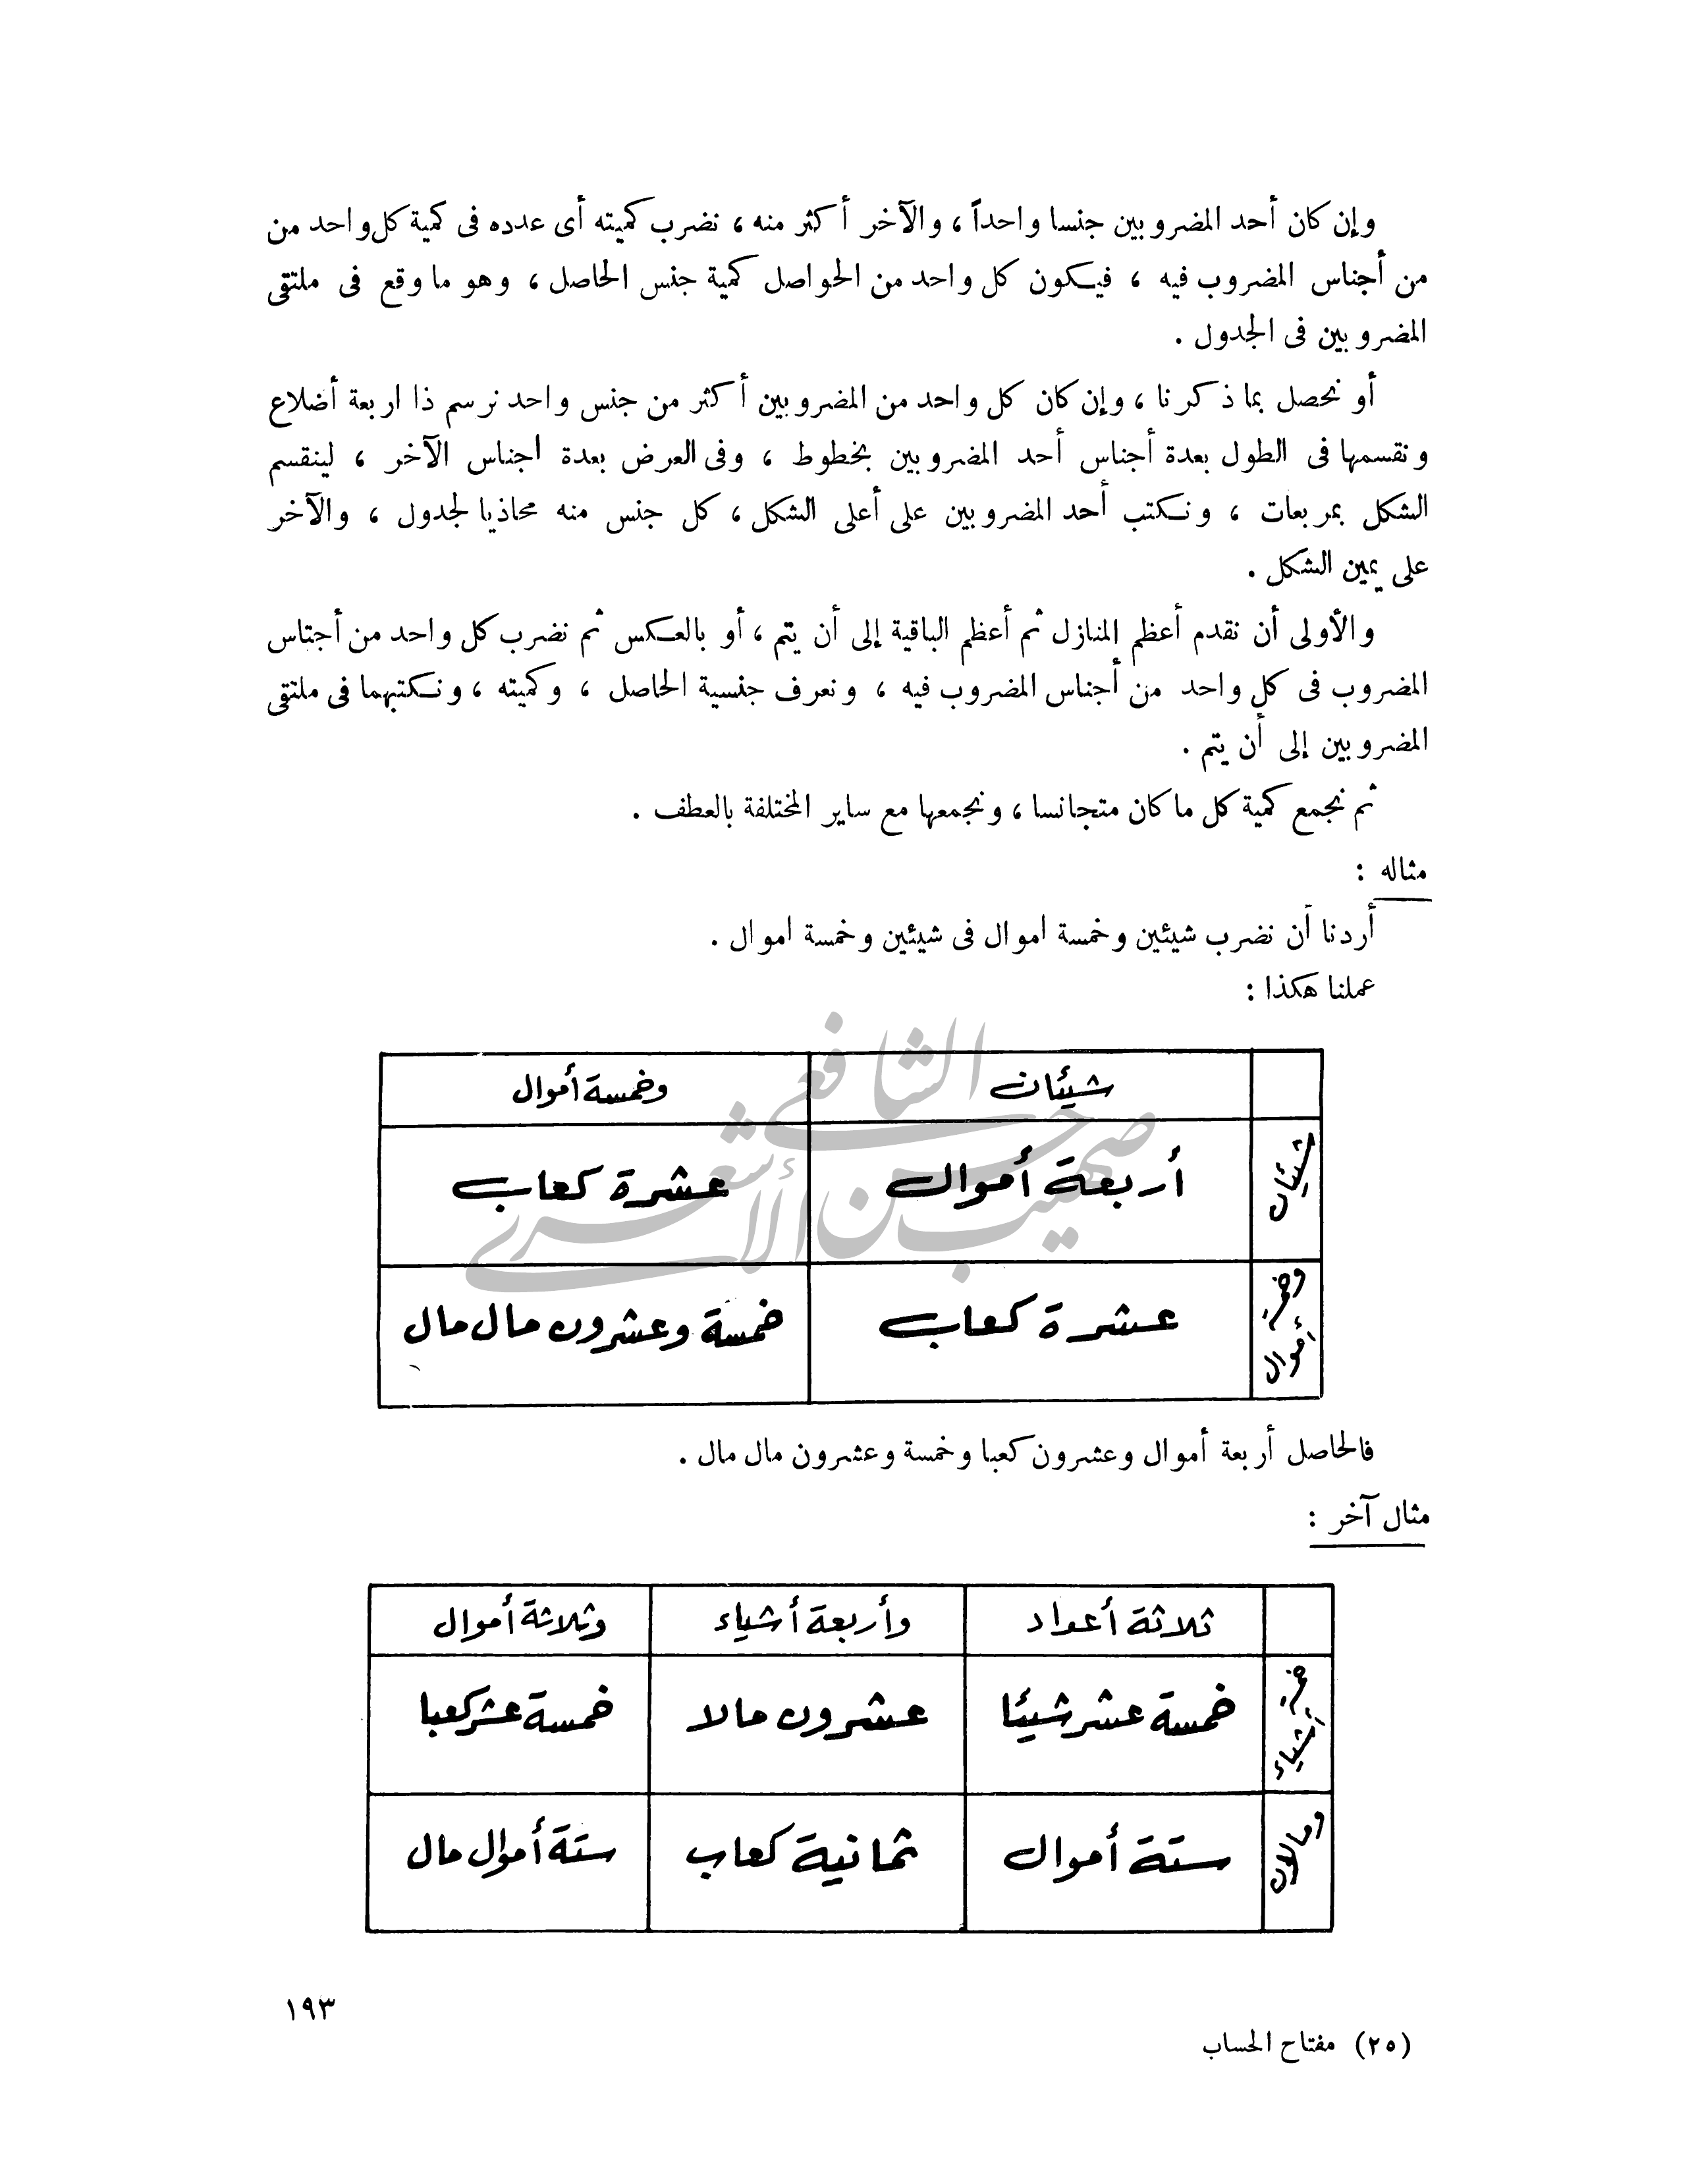 وإن كان أحد المضروبين جنسا واحداً ، والآخر أكثر منه ، نضرب كميته أى عدده فى كمية كل واحد من
من أجناس المضروب فيه ، فيكون كل واحد من الحواصل كمية جنس الحاصل ، وهو ما وقع فى ملتقى
المضروبين فى الجدول .
أو نحصل بما ذكرنا ، وإن كان كل واحد من المضروبين أكثر من جنس واحد نرسم ذا اربعة أضلاع
ونقسمها فى الطول بعدة أجناس أحد المضروبين بخطوط ، وفى العرض بعدة اجناس الآخر ، لينقسم
الشكل بمربعات ، ونكتب أحد المضروبين على أعلى الشكل ، كل جنس منه محاذيا لجدول ، والآخر
على يمين الشكل .
والأولى أن نقدم أعظم المنازل ثم أعظم الباقية إلى أن يتم ، أو بالعكس ثم نضرب كل واحد من أجناس
المضروب فى كل واحد من أجناس المضروب فيه ، ونعرف جنسية الحاصل ، وكميته ، ونكتبهما فى ملتقى
المضروبين إلى أن يتم .
ثم نجمع كمية كل ما كان متجانسا ، ونجمعها مع ساير المختلفة بالعطف .
مثاله :
أردنا أن نضرب شيئين وخمسة اموال فى شيئين وخمسة اموال .
عملنا هكذا :
شيئان وخمسة أموال
شيئان أربعة أموال عشرة كعاب
وخمسة أموال عشرة كعاب خمسة وعشرون مال مال
فالحاصل أربعة أموال وعشرون كعبا وخمسة وعشرون مال مال .
مثال آخر :
ثلاثة أعداد وأربعة أشياء وثلاثة أموال
خمسة أشياء خمسة عشر شيئا عشرون مالا خمسة عشر كعبا
ومالان ستة أموال ثمانية كعاب ستة أموال مال
١٩٣
(٢٥) مفتاح الحساب
صهيب حسن الشافعي الأشعري